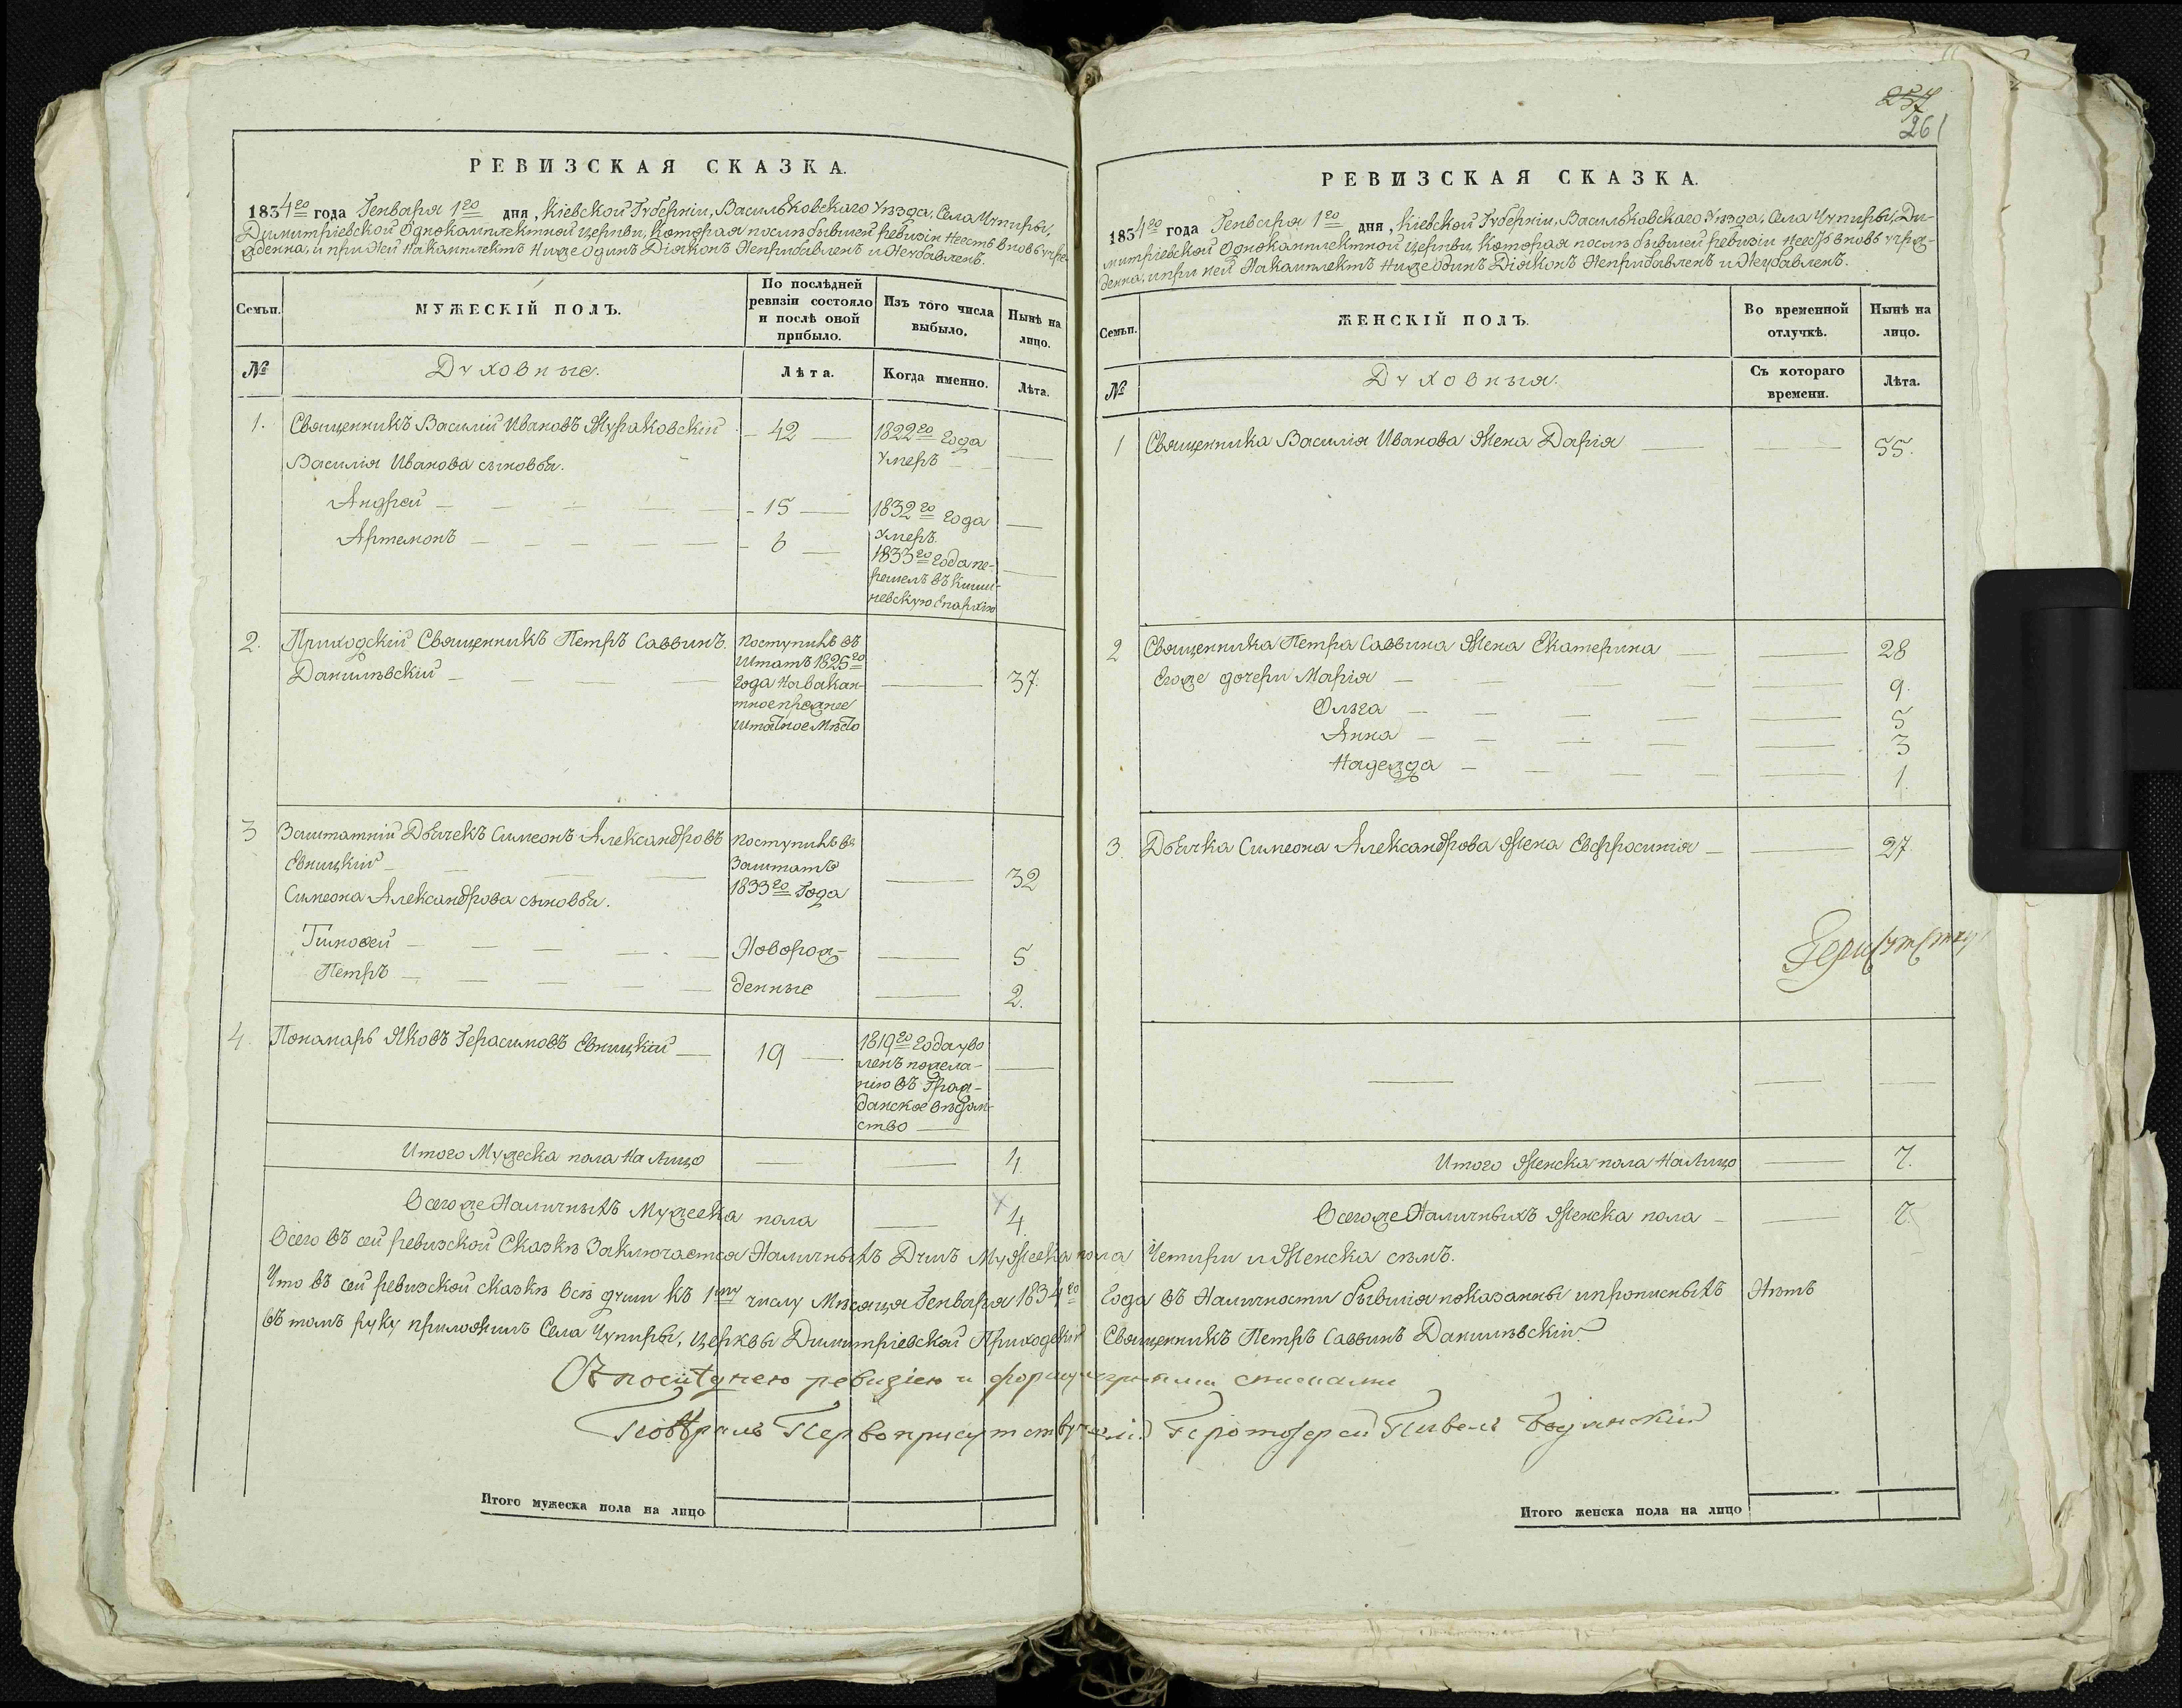 257
261
РЕВИЗСКАЯ СКАЗКА.
1834го года Генваря 1го дня, Кіевской Губерніи, Васильковскаго Уѣзда, Села Чупиры,
Димитріевской Однокамплектной церкви, которая послѣ бывшей ревизіи Неесть вновь учре-
жденна, и при Ней Накамплектъ Ниже Одинъ Діяконъ Неприбавленъ и Неубавленъ.
Семьи.
МУЖЕСКІЙ ПОЛЪ.
По послѣдней
ревизіи состояло
и послѣ оной
прибыло.
Изъ того числа
выбыло.
Нынѣ на
лицо.
№
Духовные.
Лѣта.
Когда именно.
Лѣта.
1. Священникъ Василій Ивановъ Жураковскій 42 1822го года
Умеръ
Василія Иванова сыновья.
Андрей 15 1832го года
Умеръ.
Артемонъ 6 1833го года пе-
решелъ въ Киши-
невскую Епархію
2. Приходскій Священникъ Петръ Саввинъ
Данилѣвскій 37.
Поступилъ въ
Штатъ 1825го
года На вакан-
тное прежнее
Штатное Мѣсто
3 Заштатній Дьячекъ Симеонъ Александровъ
Евницкій 32
Поступилъ въ
Заштатъ
1833го Года
Симеона Александрова сыновья.
Тимофей Новорож- 5
Петръ денные 2.
4. Понамарь Яковъ Герасимовъ Евницкій 19
1819го года уво
ленъ пожела-
нію въ Граж-
данское вѣдом-
ство
Итого Мужеска пола На Лицо 4
Всегоже Наличныхъ Мужеска пола 4.
РЕВИЗСКАЯ СКАЗКА.
1834го года Генваря 1го дня, Кіевской Губерніи, Васильковскаго Уѣзда, Села Чупиры, Ди-
митріевской Однокамплектной церкви, которая послѣ бывшей ревизіи Неесть вновь учре-
жденна, и при ней Накамплектъ Ниже Одинъ Діяконъ Неприбавленъ и Неубавленъ.
Семьи.
ЖЕНСКІЙ ПОЛЪ.
Во временной
отлучкѣ.
Нынѣ на
лицо.
№
Духовныя.
Съ котораго
времени.
Лѣта.
1 Священника Василія Иванова Жена Дарія 55.
2 Священника Петра Саввина Жена Екатерина 28
Егоже дочери Марія 9.
Ольга 5
Анна 3
Надежда 1.
3. Дьячка Симеона Александрова Жена Евфросинія 27.
Итого Женска пола НаЛицо 7.
Всегоже Наличныхъ Женска пола 7.
Всего въ сей ревизской Сказкѣ Заключается Наличныхъ Душъ Мужеска пола Четири и Женска сѣмъ.
Что въ сей ревизской сказкѣ всѣ души къ 1му числу Мѣсяця Генваря 1834го года въ Наличности бывшія показанны и прописныхъ Нѣтъ
въ томъ руку приложилъ Села Чупиры, Церквы Димитріевской Приходскій Священникъ Петръ Саввинъ Данилѣвскій
ревизіею и формулярными списками
Первоприсутствующій Протоіерей Павелъ
Итого мужеска пола на лицо
Итого женска пола на лицо